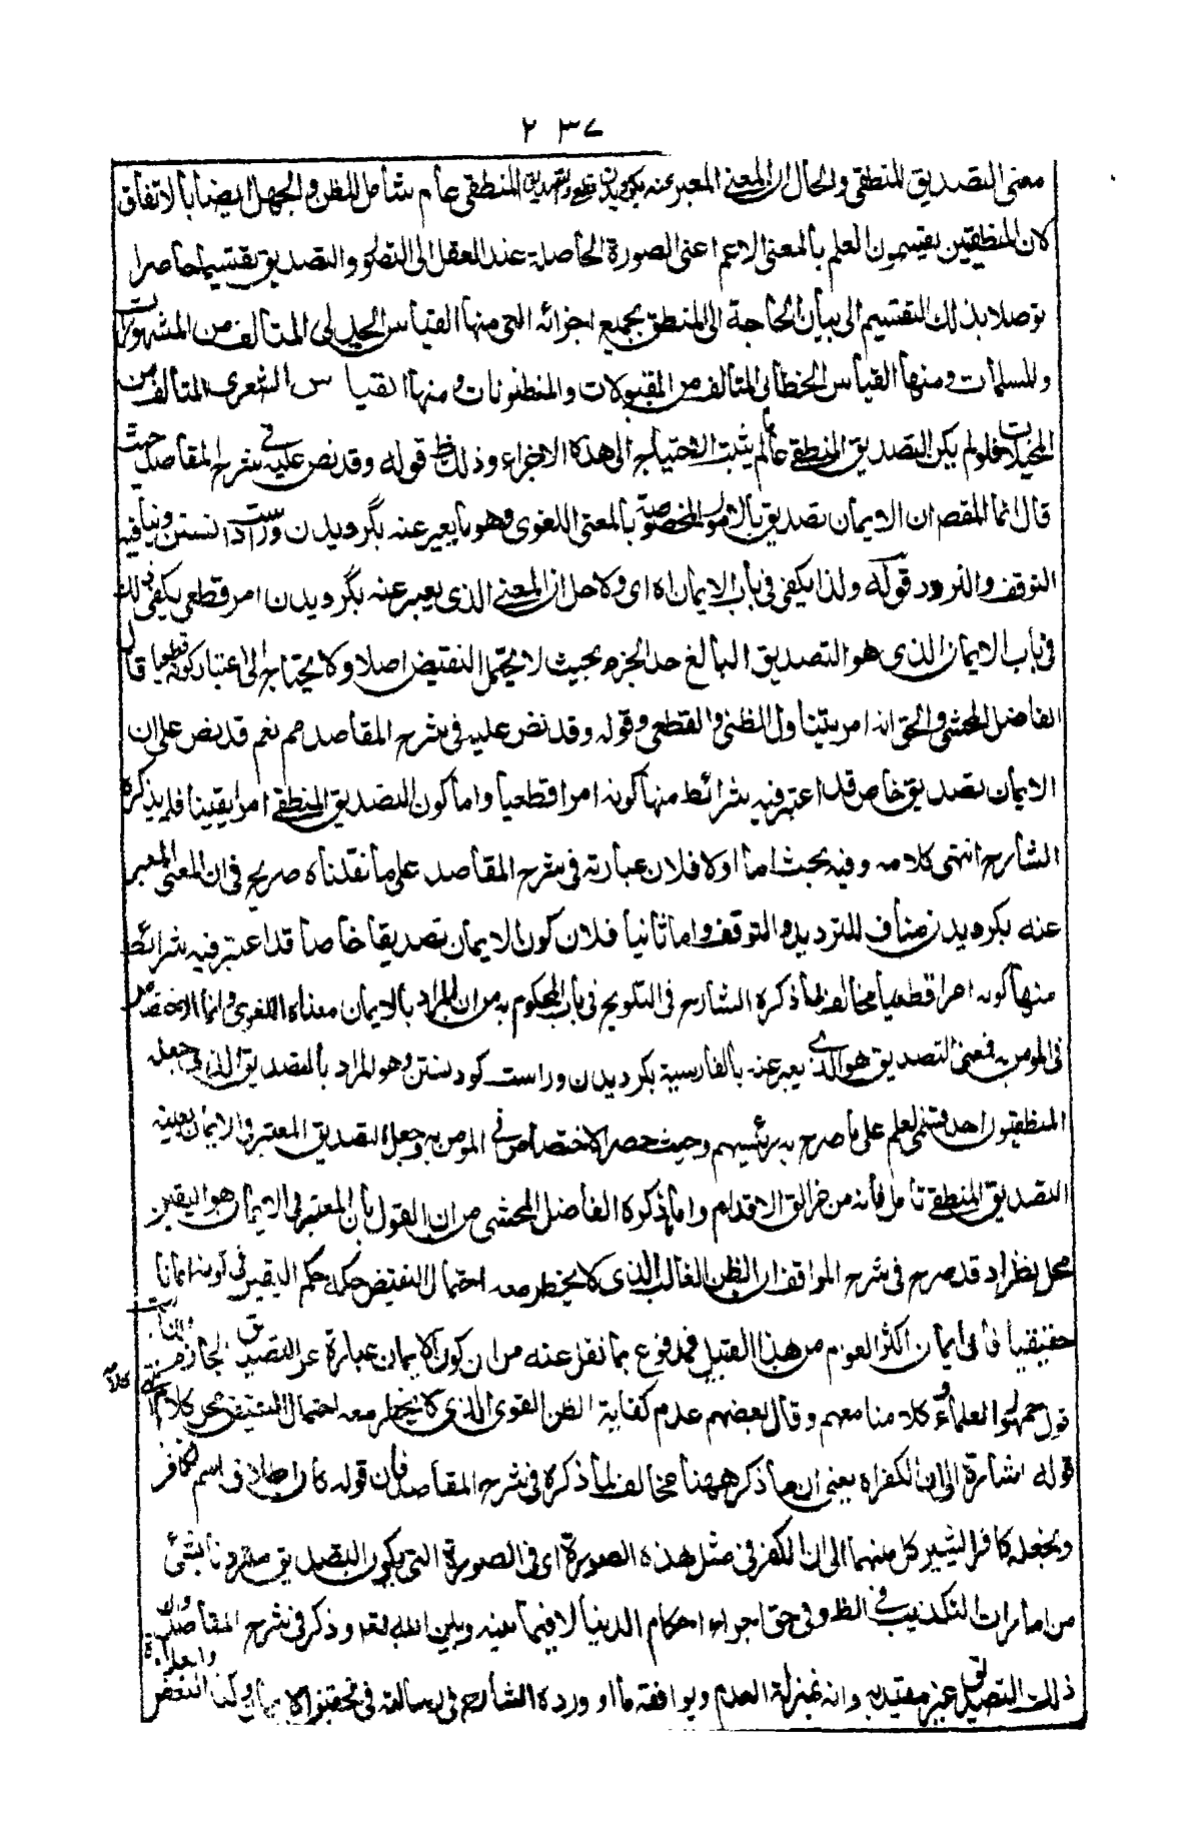 ٢٣٧
معنى التصديق المنطقى والحال ان المعنى المعبر عنه بكرويدن قطعى والتصديق المنطقى عام شامل للظن والجهل ايضا بالاتفاق
لان المنطقيين يقسمون العلم بالمعنى الاعم اعنى الصورة الحاصلة عند العقل الى التصور والتصديق تقسيما حاصرا
توصلا بذلك التقسيم الى بيان الحاجة الى المنطق بجميع اجزائه التى منها القياس الجدلى المتالف من المشهورات
والمسلمات ومنها القياس الخطابى المتالف من المقبولات والمظنونات ومنها القياس الشعرى المتالف من
المخيلات فلو لم يكن التصديق المنطقى عاما لم يثبت الاحتياج الى هذه الاجزاء وذلك ظ قوله وقد نص عليه فى شرح المقاصد حيث
قال انما المقصد ان الايمان تصديق بالامور المخصوصة بالمعنى اللغوى وهو ما يعبر عنه بگرويدن وراست دانستن وينافيه
التوقف والتردد قوله ولذا يكفى فى باب الايمان اه اى ولاجل ان المعنى الذى يعبر عنه بگرويدن امر قطعى يكفى ذلك
فى باب الايمان الذى هو التصديق البالغ حد الجزم بحيث لا يحتمل النقيض اصلا ولا يحتاج الى اعتبار كونه قطعيا قال
الفاضل المحشى والحق انه امر يتناول الظنى والقطعى وقوله وقد نص عليه فى شرح المقاصد مم نعم قد نص على ان
الايمان تصديق خاص قد اعتبر فيه شرائط منها كونه امرا قطعيا واما كون التصديق المنطقى امرا يقينا فلم يذكره
الشارح انتهى كلامه وفيه بحث اما اولا فلان عبارته فى شرح المقاصد على ما نقلناه صريح فى ان المعنى المعبر
عنه بكرويدن مناف للترديد والتوقف واما ثانيا فلان كون الايمان تصديقا خاصا قد اعتبر فيه شرائط
منها كونه امرا قطعيا مخالف لما ذكره الشارح فى التلويح فى باب المحكوم به من ان المراد بالايمان معناه اللغوى وانما الاختصاص
فى المومن به فمعنى التصديق هو الذى يعبر عنه بالفارسية بكرديدن وراست كو دانستن وهو المراد بالتصديق الذى جعله
المنطقيون احد قسمى العلم على ما صرح به رئيسهم وحيث حصر الاختصاص فى المومن به وجعل التصديق المعتبر فى الايمان بعينه
التصديق المنطقى تامل فانه من مزالق الاقدام واما ما ذكره الفاضل المحشى من ان القول بان المعتبر فى الايمان هو اليقين
محل نظر اذ قد صرح فى شرح المواقف ان الظن الغالب الذى لا يخطر معه احتمال النقيض حكمه حكم اليقين فى كونه ايمانا
حقيقيا فان ايمان اكثر العوام من هذا القبيل فمدفوع بما نقل عنه من ان كون الايمان عبارة عن التصديق الجازم والثابت
قول جمهور العلماء وكلامنا معهم وقال بعضهم عدم كفاية الظن القوى الذى لا يخطر معه احتمال النقيض محل كلام
قوله اشارة الى ان الكفر اه يعنى ان ما ذكر ههنا مخالف لما ذكره فى شرح المقاصد فان قوله كان اطلاق اسم الكافر
وبجعله كافرا يشير كل منهما الى ان الكفر فى مثل هذه الصورة اى فى الصورة التى يكون التصديق مقرونا بشئ
من امارات التكذيب فى الظ وفى حق اجراء احكام الدنيا لا فيما بينه وبين الله تعا وذكر فى شرح المقاصد ان
ذلك التصديق غير معتد به وانه بمنزلة العدم ويوافقه ما اورده الشارح فى رسالته فى تحقيق الايمان وكذا البغض